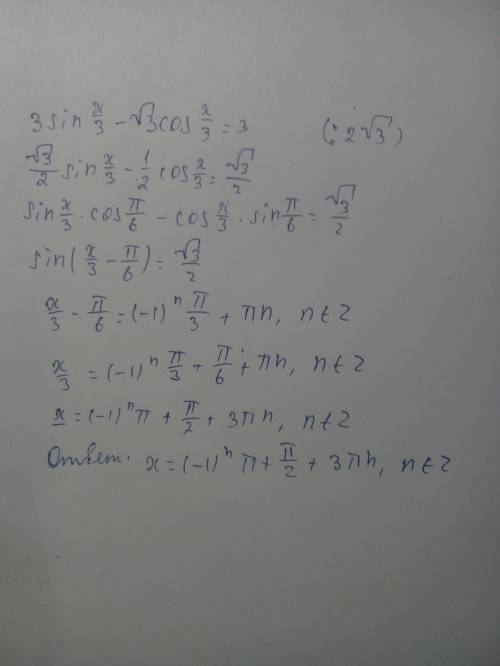 3 sin x/3 - √3 cos x/3 = 3 (: 2√3)
√3/2 sin x/3 - 1/2 cos x/3 = √3/2
sin x/3 · cos π/6 - cos x/3 · sin π/6 = √3/2
sin(x/3 - π/6) = √3/2
x/3 - π/6 = (-1)^n π/3 + πn, n ∈ Z
x/3 = (-1)^n π/3 + π/6 + πn, n ∈ Z
x = (-1)^n π + π/2 + 3πn, n ∈ Z
Ответ: x = (-1)^n π + π/2 + 3πn, n ∈ Z